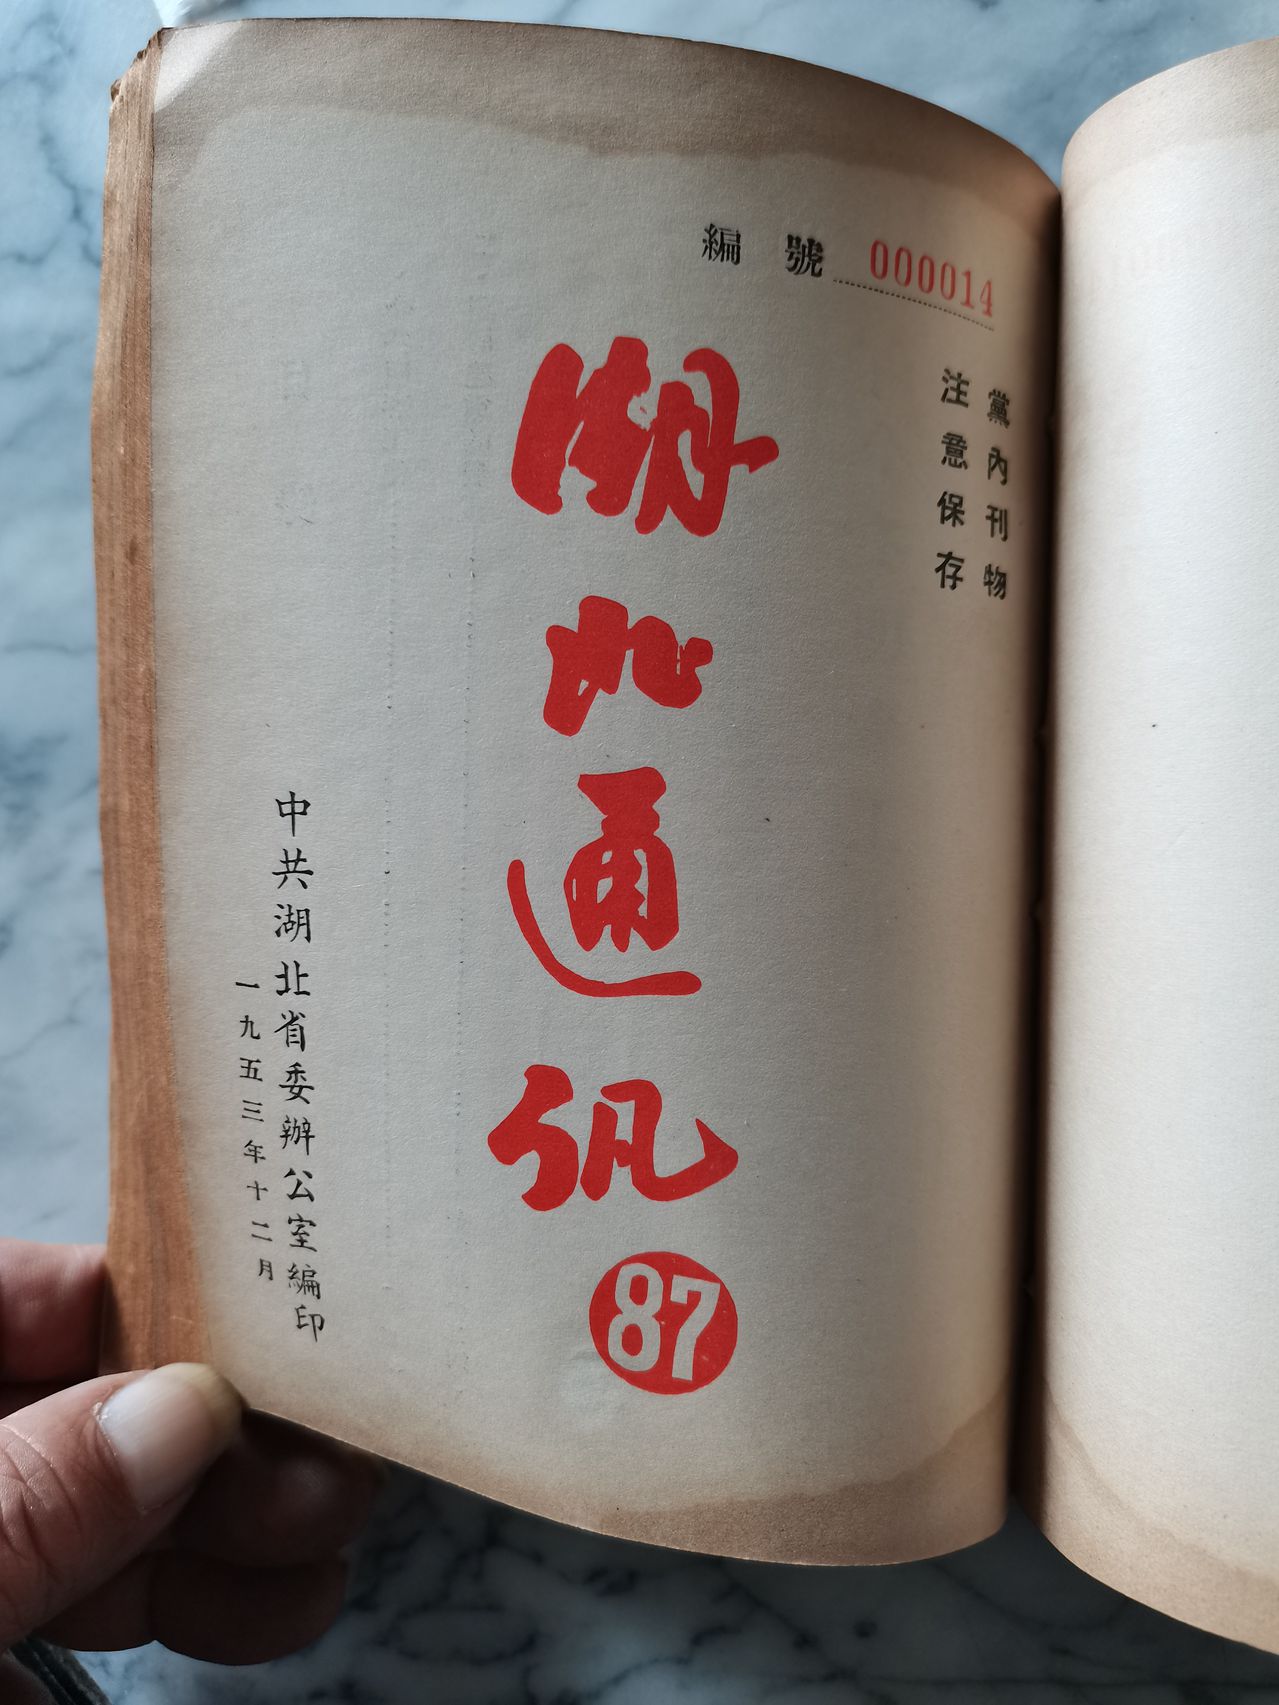 編號 000014
黨內刊物
注意保存
湖北通讯
87
中共湖北省委辦公室編印
一九五三年十二月